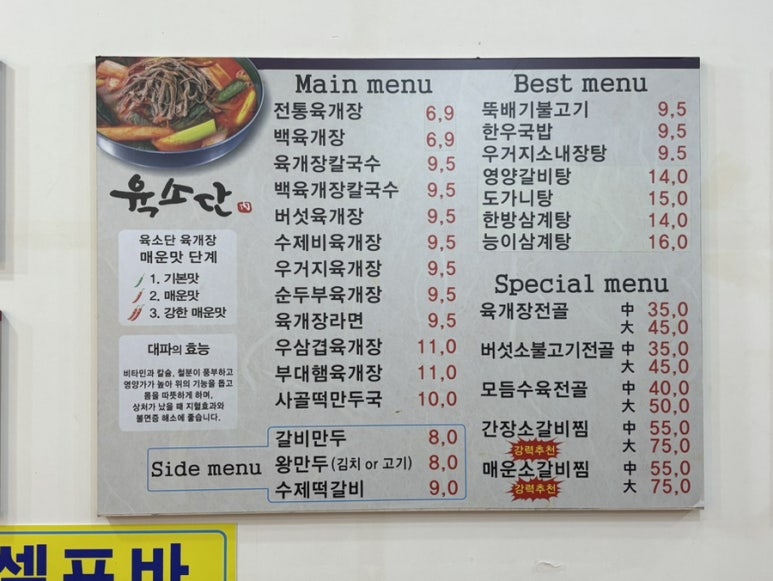 육소단
육소단 육개장
매운맛 단계
1. 기본맛
2. 매운맛
3. 강한 매운맛
대파의 효능
비타민과 칼슘, 철분이 풍부하고
영양가가 높아 위의 기능을 돕고
몸을 따뜻하게 하며,
상처가 났을 때 지혈효과와
불면증 해소에 좋습니다.
Main menu
전통육개장 6,9
백육개장 6,9
육개장칼국수 9,5
백육개장칼국수 9,5
버섯육개장 9,5
수제비육개장 9,5
우거지육개장 9,5
순두부육개장 9,5
육개장라면 9,5
우삼겹육개장 11,0
부대햄육개장 11,0
사골떡만두국 10,0
Side menu
갈비만두 8,0
왕만두(김치 or 고기) 8,0
수제떡갈비 9,0
Best menu
뚝배기불고기 9,5
한우국밥 9,5
우거지소내장탕 9.5
영양갈비탕 14,0
도가니탕 15,0
한방삼계탕 14,0
능이삼계탕 16,0
Special menu
육개장전골 中 35,0
大 45,0
버섯소불고기전골 中 35,0
大 45,0
모듬수육전골 中 40,0
大 50,0
간장소갈비찜 中 55,0
강력추천 大 75,0
매운소갈비찜 中 55,0
강력추천 大 75,0
셀프바